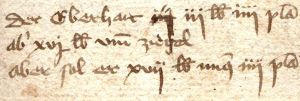 der Eberhart iij lb iiij pfd
ab xvj lb vnd ziegel
aber sol er xvij lb iiij pfd